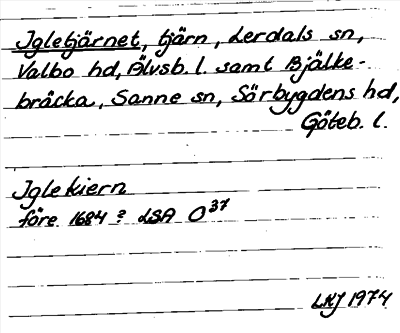 Igletjärnet, tjärn, Lerdals sn,
Valbo hd, Älvsb. l. samt Bjälke-
bräcka, Sanne sn, Sörbygdens hd,
Göteb. l.
Iglekiern
före 1684? LSA O 37
LNJ 1974